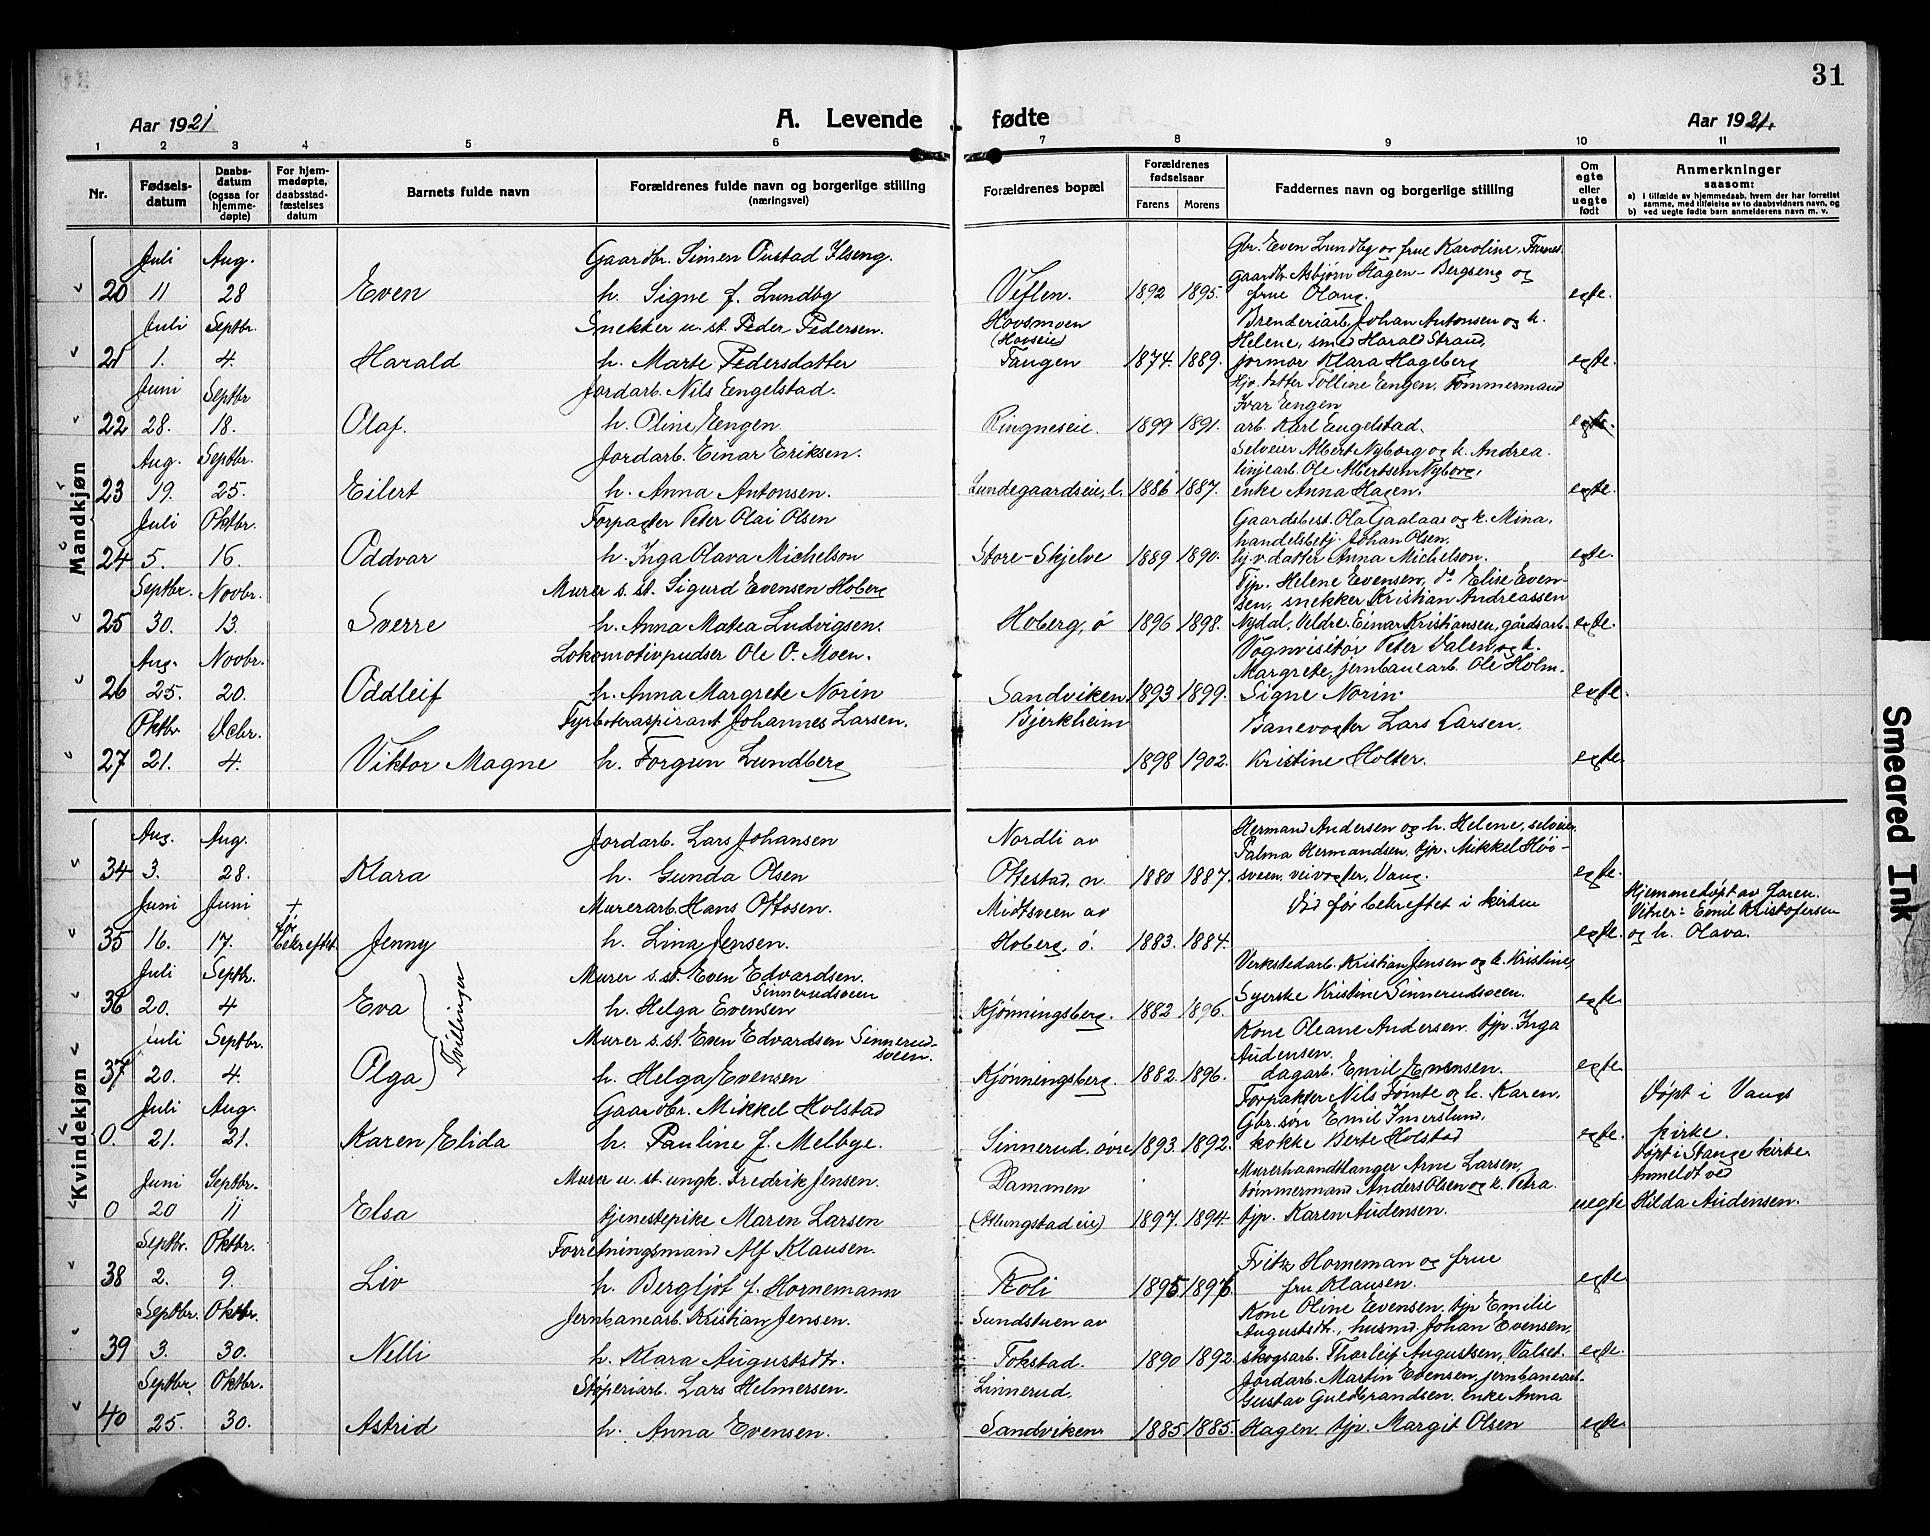 31
Aar 1921. A. Levende fødte Aar 1921.
1 2 3 4 5 6 7 8 9 10 11
Nr. Fødsels-datum Daabs-datum (ogsaa for hjemme-døpte) For hjem-medøpte, daabsstad-fæstelses datum Barnets fulde navn Forældrenes fulde navn og borgerlige stilling (næringsvei) Forældrenes bopæl Forældrenes fødselsaar Farens Morens Faddernes navn og borgerlige stilling Om egte eller uegte født Anmerkninger saasom:
a) i tilfælde av hjemmedaab, hvem der har forrettet samme, med tilføielse av to daabsvidners navn, og
b) ved uegte fødte barn anmelderens navn m. v.
Mandkjøn
Juli Aug. Gaardbr. Simen Oustad Ilseng. Gbr. Even Lundby og frue Karoline, Farnes.
gaardbr. Asbjørn Hagen-Bergseng og
20 11 28 Even h. Signe f. Lundby Veflen. 1892 1895. frue Olaug. egte.
Juli Septbr. Snekker u. st. Peder Pedersen. Hovsmoen Brenderiarb. Johan Antonsen og h.
(Hovseie) Helene, smed Harald Strand,
21 1. 4. Harald h. Marte Pedersdatter Tangen 1874. 1889. jormor Klara Hageberg egte.
Juni Septbr Jordarb. Nils Engelstad. Hjv. datter Tolline Engen. Tømmermand
Ivar Engen
22 28. 18. Olaf. h. Oline Engen. Ringneseie. 1899 1891. arb. Karl Engelstad. egte.
Aug. Septbr. Jordarb. Einar Eriksen. Selveier Albert Nyborg og h. Andrea.
linjearb. Ole Albertsen Nyborg,
23 19. 25. Eilert h. Anna Antonsen. Lundegaardseie, l. 1886 1887. enke Anna Hagen. egte.
Juli Oktbr. Forpagter Peter Olai Olsen Gaardsbest. Ola Gaalaas og h. Mina,
handelsbetj. Johan Olsen.
24 5. 16. Oddvar h. Inga Olava Michelson Store-Skjelve 1889 1890. hj. v. datter Anna Michelson. egte.
Septbr. Novbr. Murer s. st. Sigurd Evensen Hoberg Tjp. Helene Evensen, do Elise Even-
sen, snekker Kristian Andreassen
25 30. 13. Sverre h. Anna Matea Ludvigsen. Hoberg, ø 1896 1898. Nydal, Veldre. Einar Kristiansen, gårdsarb. egte.
Aug. Novbr. Lokomotivpudser Ole O. Moen. Vognvisitør Peter Dalen og h.
Margrete, jernbanearb. Ole Holm.
26 25. 20. Oddleif h. Anna Margrete Norin Sandviken 1893 1899. Signe Norin. egte.
Oktbr Decbr. Fyrbøteraspirant Johannes Larsen. Bjerkheim Banevogter Lars Larsen.
27 21. 4. Viktor Magne h. Torgun Lundberg 1898 1902. Kristine Holter. egte.
Kvindekjøn
Aug. Aug. Jordarb. Lars Johansen Nordli av Herman Andersen og h. Helene, selveier.
Palma Hermandsen, tjp. Mikkel Høi-
34 3. 28. Klara h. Gunda Olsen Okestad, n. 1880 1887. sveen, veivogter, Vang. egte.
Juni Juni + Murerarb. Hans Ottosen. Midtsveen av Død før bekreftet i kirken Hjemmedøpt av faren.
før Vitner: Emil Kristofersen
35 16. 17. bekreftet. Jenny h. Lina Jensen. Hoberg, ø. 1883. 1884. egte. og h. Olava.
Juli Septbr. Murer s. st. Even Edvardsen. Verkstedarb. Kristian Jensen og h. Kristine,
Sinnerudsveen
36 20. 4 Eva h. Helga Evensen Kjønningsberg. 1882 1896. Syerske Kristine Sinnerudsveen. egte
Tvillinger
Juli Septbr. Murer s. st. Even Edvardsen Sinnerud- Kone Oleane Andersen. tjp. Inga
sveen. Audensen.
37 20. 4. Olga h. Helga Evensen Kjønningsberg. 1882. 1896. dagarb. Emil Evensen. egte.
Juli Aug. Gaardbr. Mikkel Holstad Forpakter Nils Tømte og h. Karen, Døpt i Vangs
Gbr. søn Emil Imerslund,
0. 21. 21. Karen Elida h. Pauline f. Melbye. Sinnerud, øvre 1893. 1892. kokke Berte Holstad egte. kirke.
Juni Septbr. Murer u. st. ungk. Fredrik Jensen. Dammen Murerhaandlanger Arne Larsen, Døpt i Stange kirke
tømmermand Anders Olsen og h. Petra. Anmeldt ved
0 20 11 Elsa tjenestepike Maren Larsen (Atlungstadeie) 1897. 1894. tjp. Karen Audensen. uegte Hilda Audensen.
Septbr. Oktbr. Forretningsmand Alf Klausen. Fritz Horneman og frue
38 2. 9. Liv h. Bergljot f. Hornemann Roli 1895 1896. fru Klausen. egte
Septbr. Oktbr Jernbanearb. Kristian Jensen. Sundstuen av Kone Oline Evensen, tjp Emilie
Augustsdtr., husmd. Johan Evensen,
39 3. 30. Nelli h. Klara Augustsdtr. Tokstad. 1890 1892. skogsarb. Tharleif Augustsen, Valset. egte.
Septbr. Oktbr. Støperiarb. Lars Helmersen. Linnerud. Jordarb. Martin Evensen, jernbanearb.
Gustav Guldbrandsen, enke Anna
40 25. 30. Astrid h. Anna Evensen. Sandviken 1885 1885. Hagen. tjp. Margit Olsen egte.
Smeared Ink